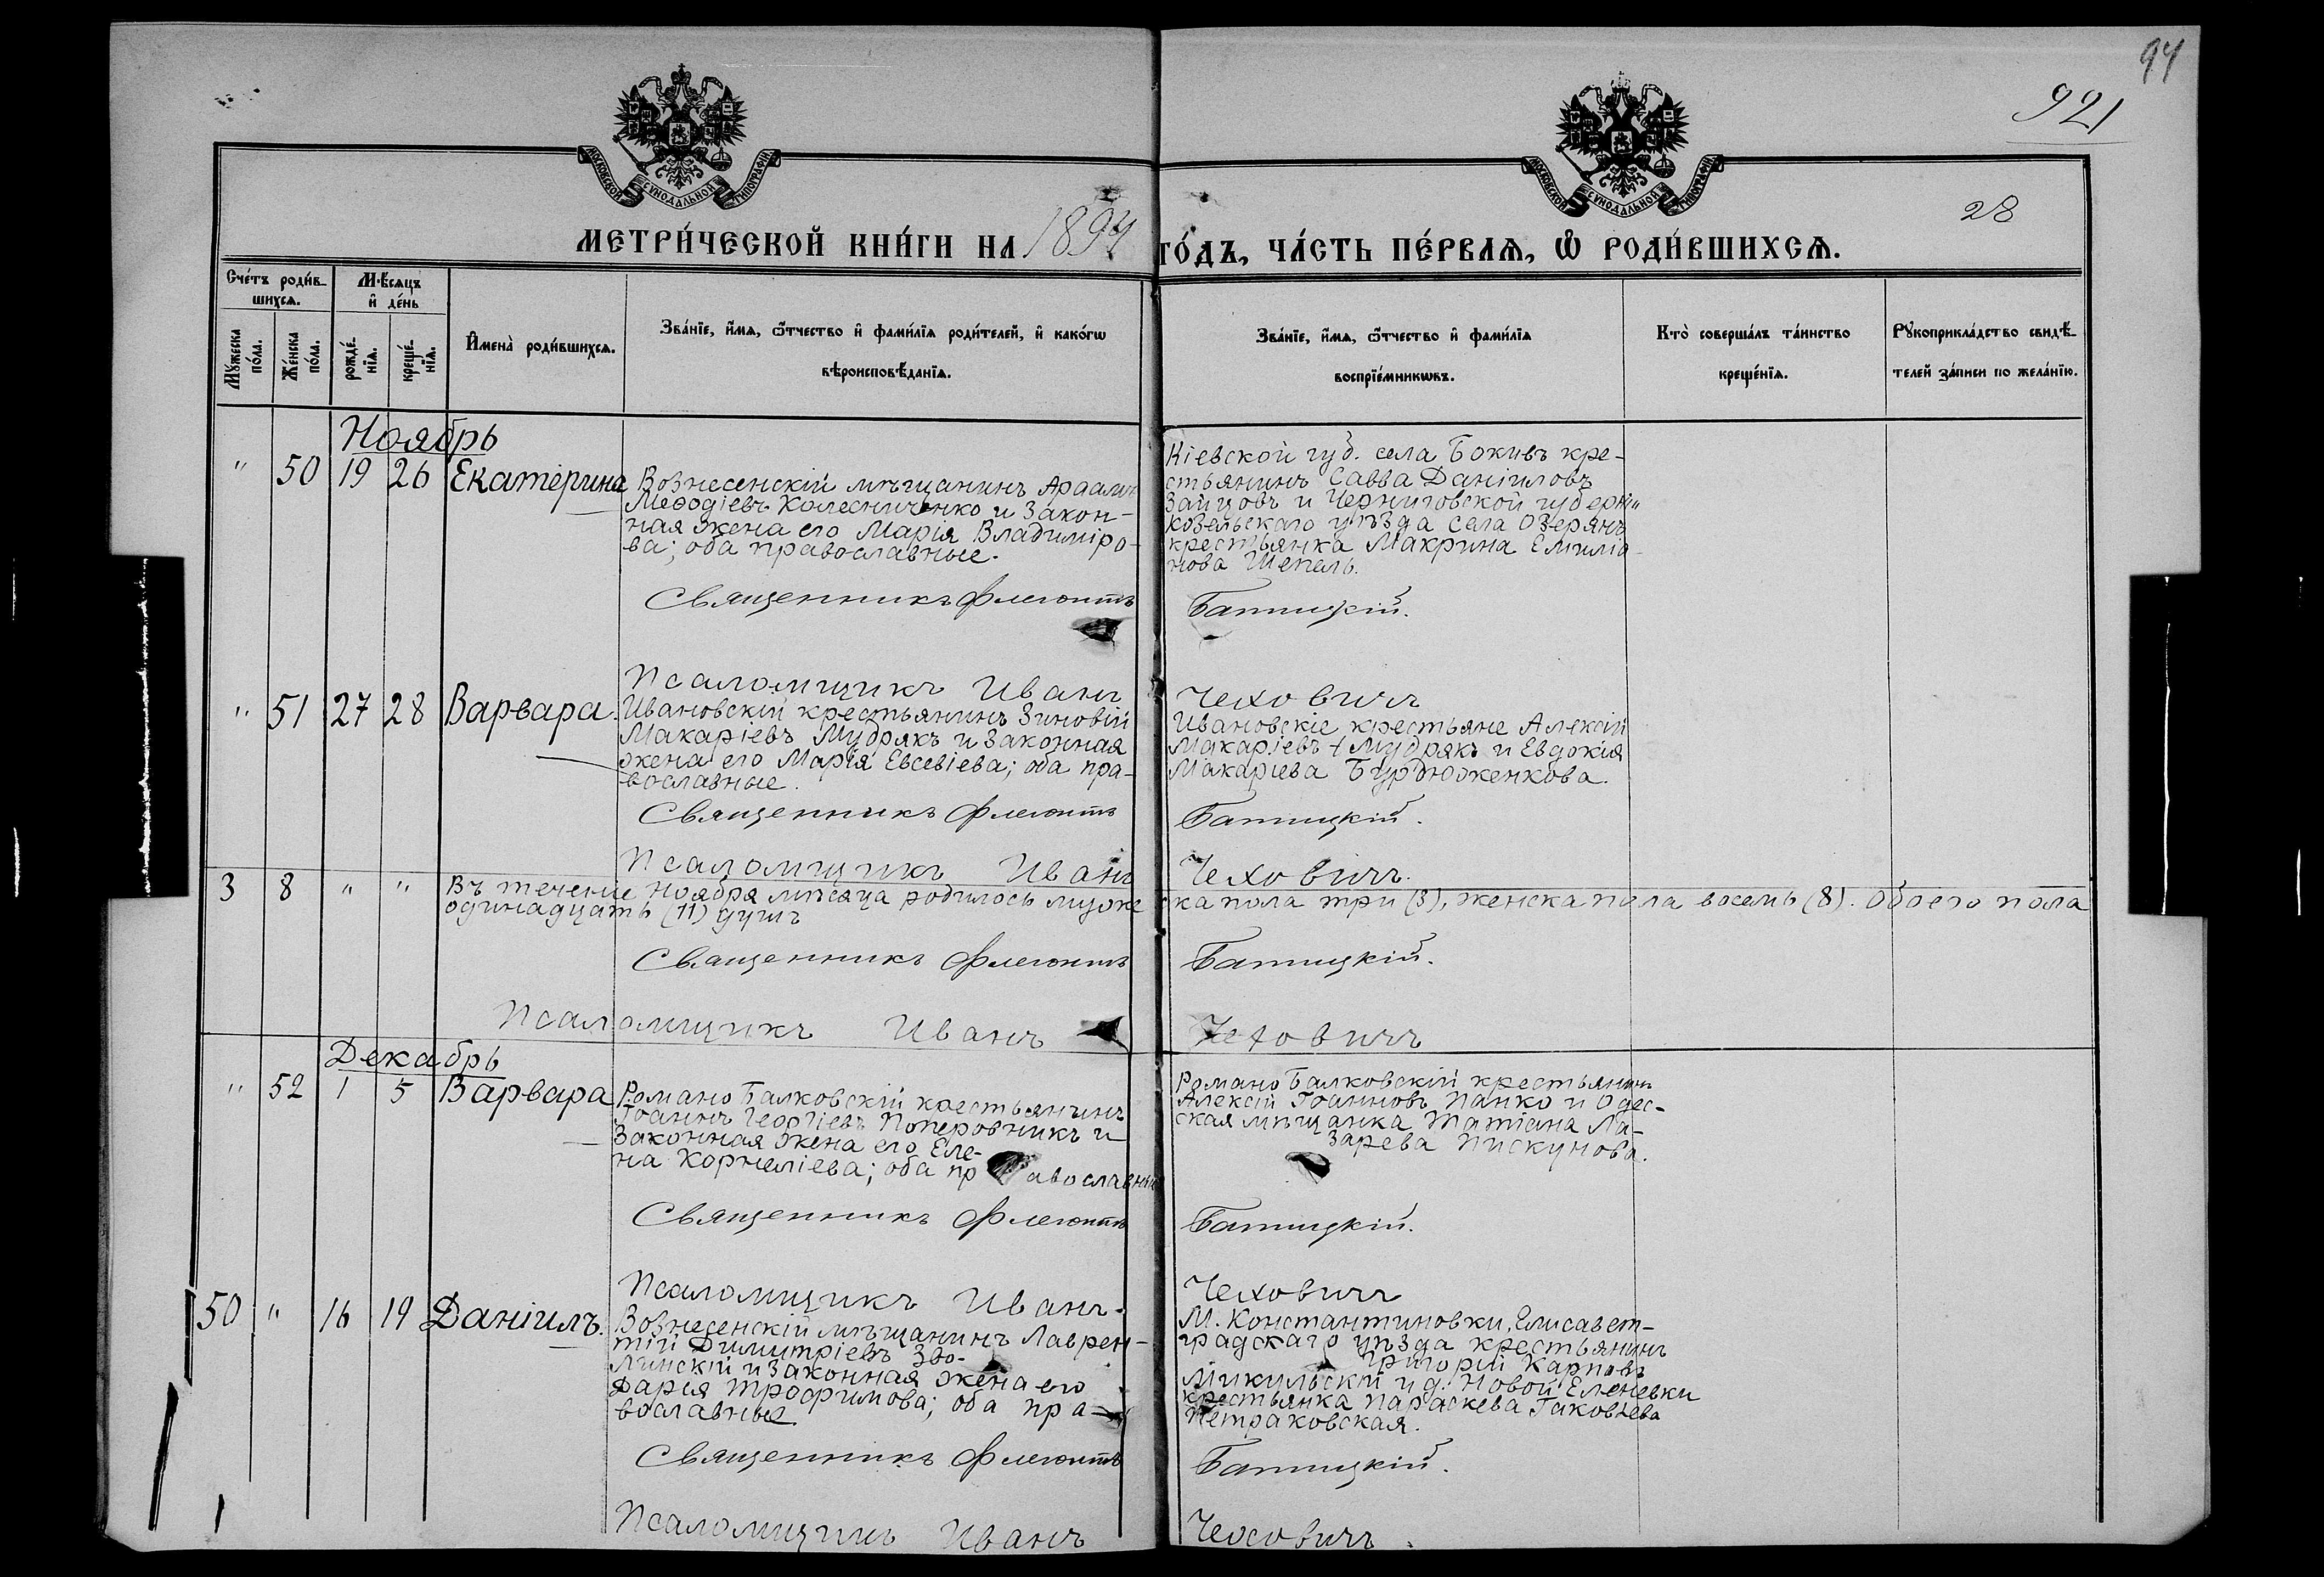 94
921
28
МОСКОВСКОЙ СУНОДАЛЬНОЙ ТИПОГРАФІИ
МОСКОВСКОЙ СУНОДАЛЬНОЙ ТИПОГРАФІИ
МЕТРИ́ЧЕСКОЙ КНИ́ГИ НА 1894 ГО́ДЪ, ЧА́СТЬ ПЕ́РВАѦ, Ѡ҆ РОДИ́ВШИХСѦ.
Сче́тъ роди́в-
шихсѧ.
Мѣ́сяцъ
и҆ де́нь
Мꙋ́жеска по́ла.
Же́нска по́ла.
рожде́-
нїѧ.
креще́-
нїѧ.
И҆мена̀ роди́вшихсѧ.
Зва́нїе, и҆́мѧ, ѻ҆́тчество и҆ фами́лїѧ роди́телей, и҆ како́гѡ
вѣроисповѣ́данїѧ.
Зва́нїе, и҆́мѧ, ѻ҆́тчество и҆ фами́лїѧ
воспрїе́мникѡвъ.
Кто̀ соверша́лъ та́инство
креще́нїѧ.
Рꙋкоприкла́дство свидѣ́-
телей за́писи по жела́нїю.
Ноябрь
" 50 19 26 Екатерина
Вознесенскій мѣщанинъ
Меѳодіевъ Колесниченко и закон-
ная жена его Марія Владиміро-
ва; оба православные.
Кіевской губ. села Бокивъ кре-
стьянинъ Савва Даніиловъ
Зайцовъ и Черниговской губерн.
Козельскаго уѣзда села Озерянъ
крестьянка Макрина Емиліа-
нова Шепель.
Священникъ Флегонтъ Батицкій.
Псаломщикъ Иванъ Чеховичъ
" 51 27 28 Варвара.
Ивановскій крестьянинъ Зиновій
Макаріевъ Мудрякъ и законная
жена его Марія Евсевіева; оба пра-
вославные.
Ивановскіе крестьяне Алексій
Макаріевъ Мудрякъ и Евдокія
Макаріева Бурдюженкова.
Священникъ Флегонтъ Батицкій.
Псаломщикъ Иванъ Чеховичъ.
3 8 " " Въ теченіе Ноября мѣсяца родилось мужеска пола три (3), женска пола восемь (8). Обоего пола
одинадцать (11) душъ
Священникъ Флегонтъ Батицкій.
Псаломщикъ Иванъ Чеховичъ
Декабрь
" 52 1 5 Варвара
Романо Балковскій крестьянинъ
Іоаннъ Георгіевъ Поперовникъ и
законная жена его Еле-
на Корнеліева; оба православные
Романо Балковскій крестьянинъ
Алексій Іоанновъ Панко и Одес-
ская мѣщанка Татіана Ла-
зарева Пискунова.
Священникъ Флегонтъ Батицкій.
Псаломщикъ Иванъ Чеховичъ
50 " 16 19 Даніилъ.
Вознесенскій мѣщанинъ Лаврен-
тій Димитріевъ Зво-
линскій и законная жена его
Дарія Трофимова; оба пра-
вославные
М. Константиновки, Елисавет-
градскаго уѣзда крестьянинъ
Григорій Карповъ
Микульскій и д. Новой Еленевки
крестьянка Параскева Іаковлева
Петраковская.
Священникъ Флегонтъ Батицкій.
Псаломщикъ Иванъ Чеховичъ.